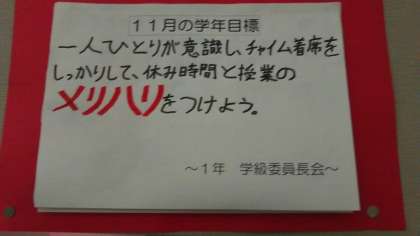 １１月の学年目標
一人ひとりが意識し、チャイム着席を
しっかりして、休み時間と授業の
メリハリをつけよう。
～１年　学級委員長会～